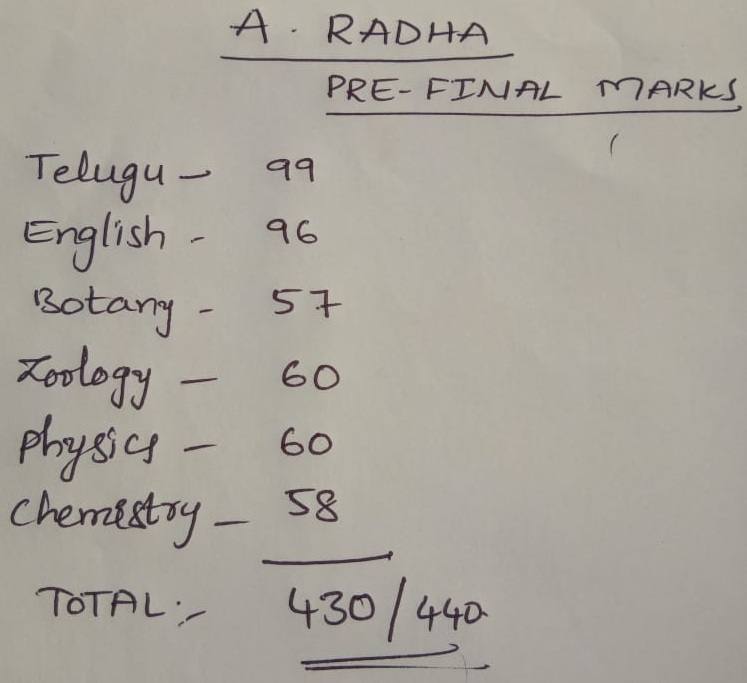 A. RADHA
PRE-FINAL MARKS
Telugu - 99
English - 96
Botany - 57
Zoology - 60
Physics - 60
Chemistry - 58
TOTAL:- 430/440